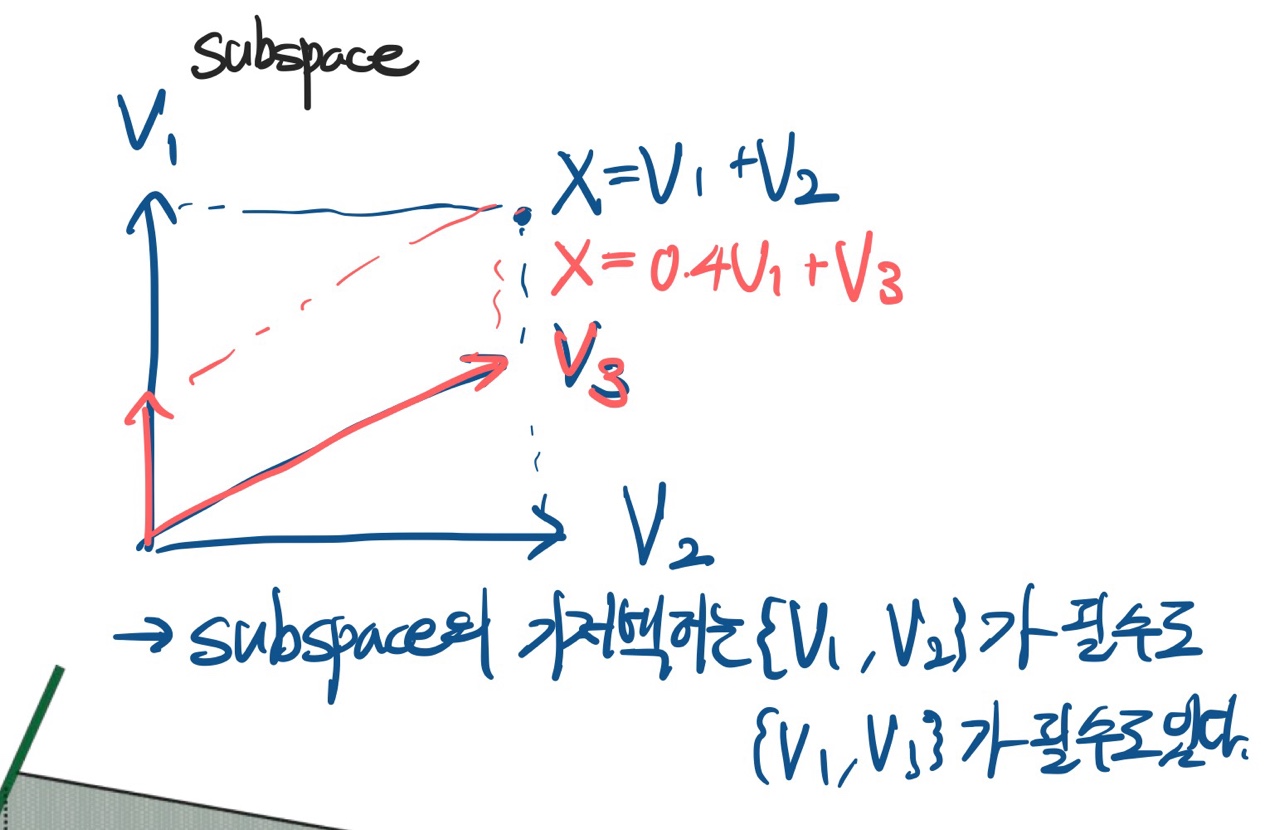 subspace
V₁
X=V₁+V₂
X=0.4V₁+V₃
V₃
V₂
→ subspace의 기저벡터는 {V₁, V₂}가 될수도
{V₁, V₃}가 될수도있다.